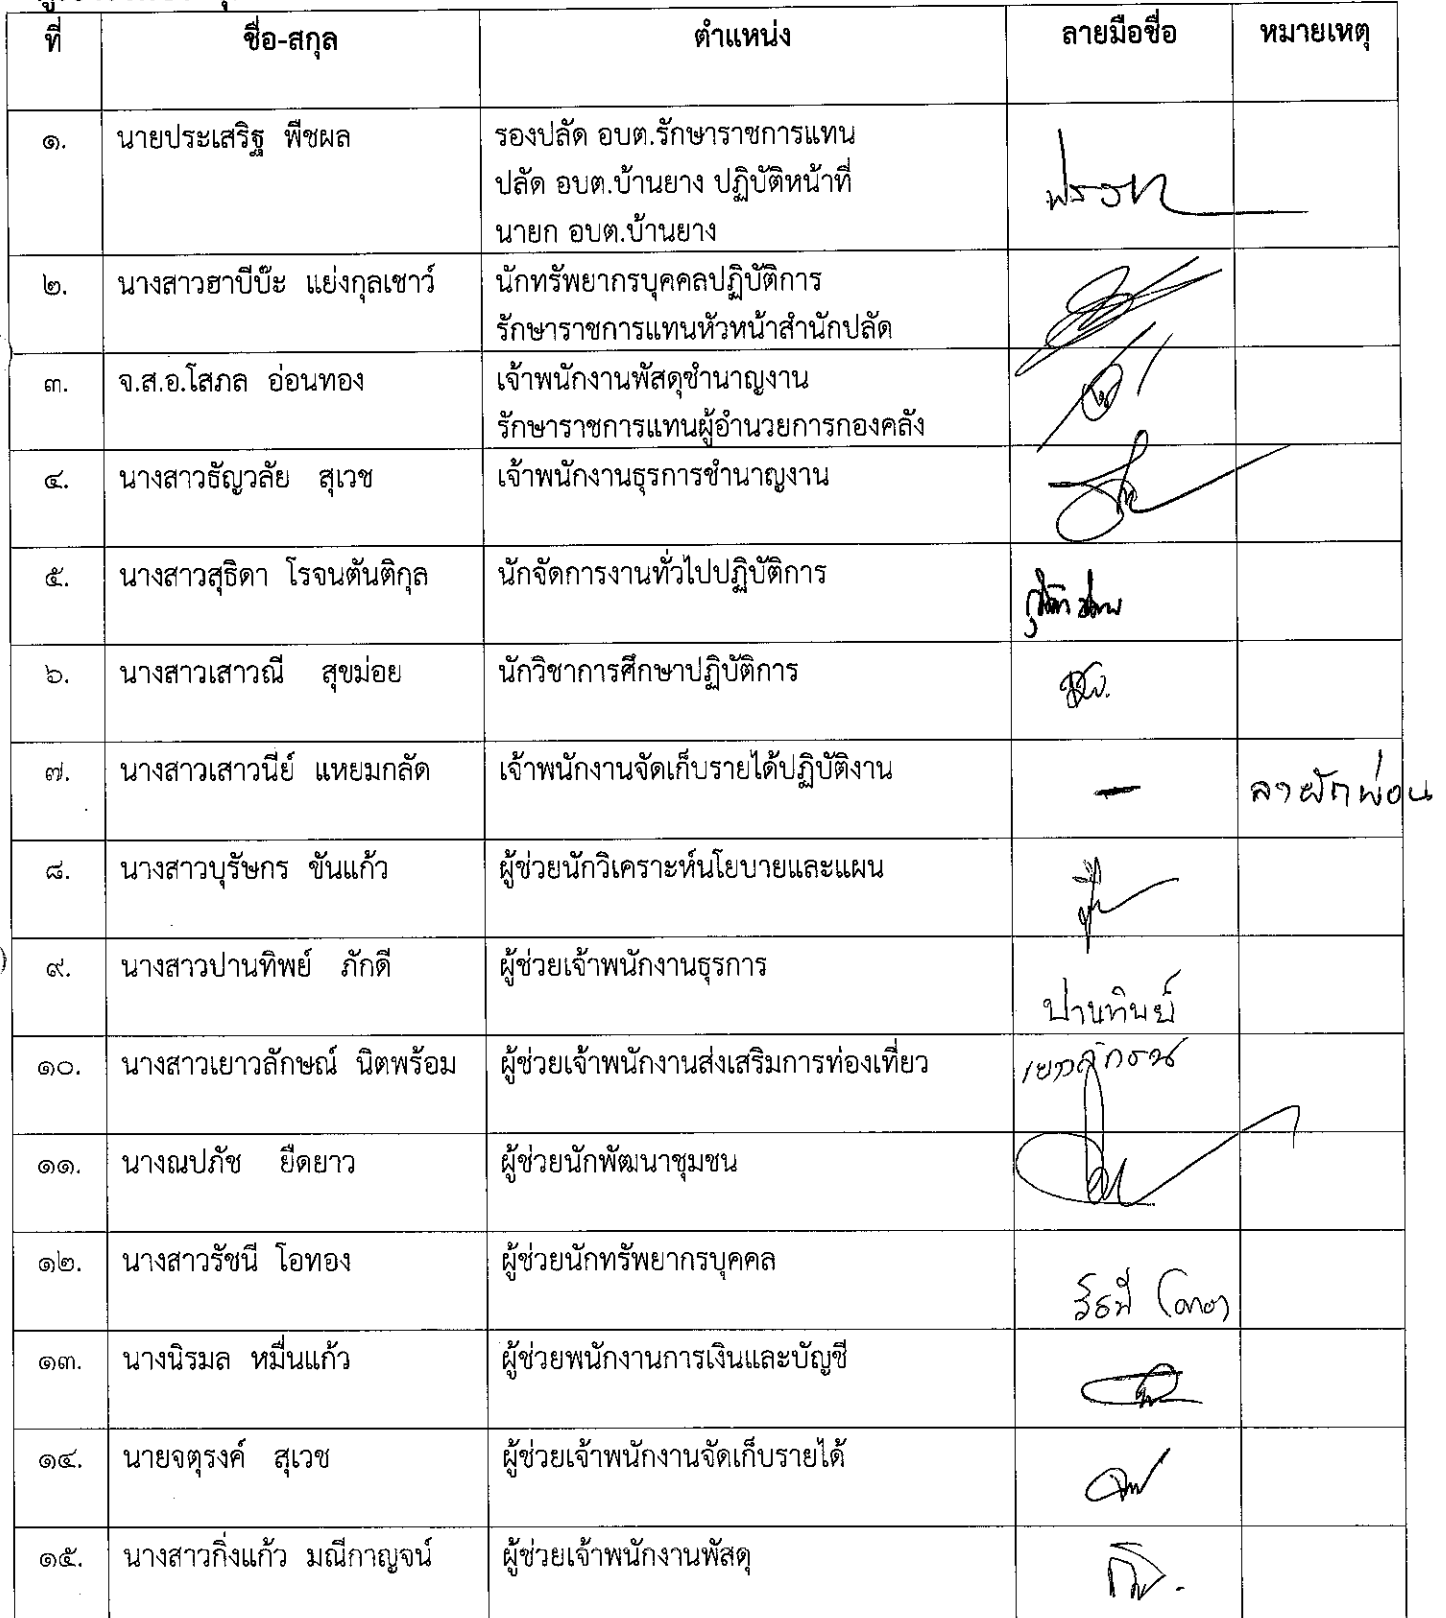 ที่ ชื่อ-สกุล ตำแหน่ง ลายมือชื่อ หมายเหตุ
๑. นายประเสริฐ พืชผล รองปลัด อบต.รักษาราชการแทน
ปลัด อบต.บ้านยาง ปฏิบัติหน้าที่
นายก อบต.บ้านยาง
๒. นางสาวฮาบีบ๊ะ แย่งกุลเชาว์ นักทรัพยากรบุคคลปฏิบัติการ
รักษาราชการแทนหัวหน้าสำนักปลัด
๓. จ.ส.อ.โสภล อ่อนทอง เจ้าพนักงานพัสดุชำนาญงาน
รักษาราชการแทนผู้อำนวยการกองคลัง
๔. นางสาวธัญวลัย สุเวช เจ้าพนักงานธุรการชำนาญงาน
๕. นางสาวสุธิดา โรจนตันติกุล นักจัดการงานทั่วไปปฏิบัติการ
๖. นางสาวเสาวณี สุขม่อย นักวิชาการศึกษาปฏิบัติการ
๗. นางสาวเสาวนีย์ แหยมกลัด เจ้าพนักงานจัดเก็บรายได้ปฏิบัติงาน - ลาพักผ่อน
๘. นางสาวบุรัษกร ขันแก้ว ผู้ช่วยนักวิเคราะห์นโยบายและแผน
๙. นางสาวปานทิพย์ ภักดี ผู้ช่วยเจ้าพนักงานธุรการ
ปานทิพย์
๑๐. นางสาวเยาวลักษณ์ นิตพร้อม ผู้ช่วยเจ้าพนักงานส่งเสริมการท่องเที่ยว เยาวลักษณ์
๑๑. นางณปภัช ยืดยาว ผู้ช่วยนักพัฒนาชุมชน
๑๒. นางสาวรัชนี โอทอง ผู้ช่วยนักทรัพยากรบุคคล
รัชนี
๑๓. นางนิรมล หมื่นแก้ว ผู้ช่วยพนักงานการเงินและบัญชี
๑๔. นายจตุรงค์ สุเวช ผู้ช่วยเจ้าพนักงานจัดเก็บรายได้
๑๕. นางสาวกิ่งแก้ว มณีกาญจน์ ผู้ช่วยเจ้าพนักงานพัสดุ